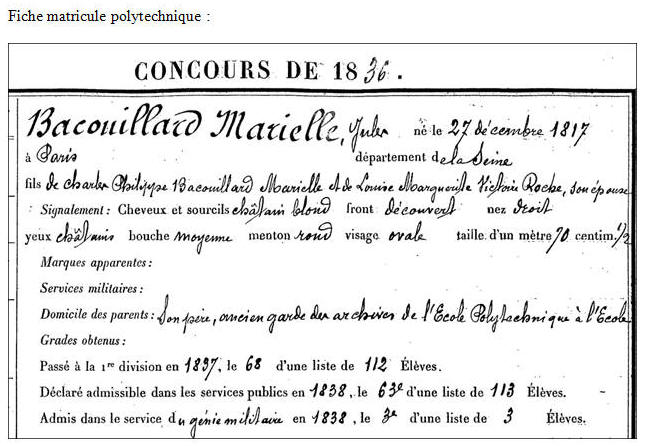 Fiche matricule polytechnique :
CONCOURS DE 1836.
Bacouillard Marielle, Jules né le 27 décembre 1817
à Paris département de la Seine
fils de Charles Philippe Bacouillard Marielle et de Louise Marguerite Victoire Roche, son épouse
Signalement : Cheveux et sourcils châtain blond front découvert nez droit
yeux châtains bouche moyenne menton rond visage ovale taille d'un mètre 70 centim. 1/2
Marques apparentes :
Services militaires :
Domicile des parents : Son père, ancien garde des archives de l'Ecole Polytechnique à l'Ecole
Grades obtenus :
Passé à la 1re division en 1837, le 68 d'une liste de 112 Élèves.
Déclaré admissible dans les services publics en 1838, le 63e d'une liste de 113 Élèves.
Admis dans le service du génie militaire en 1838, le 3e d'une liste de 3 Élèves.